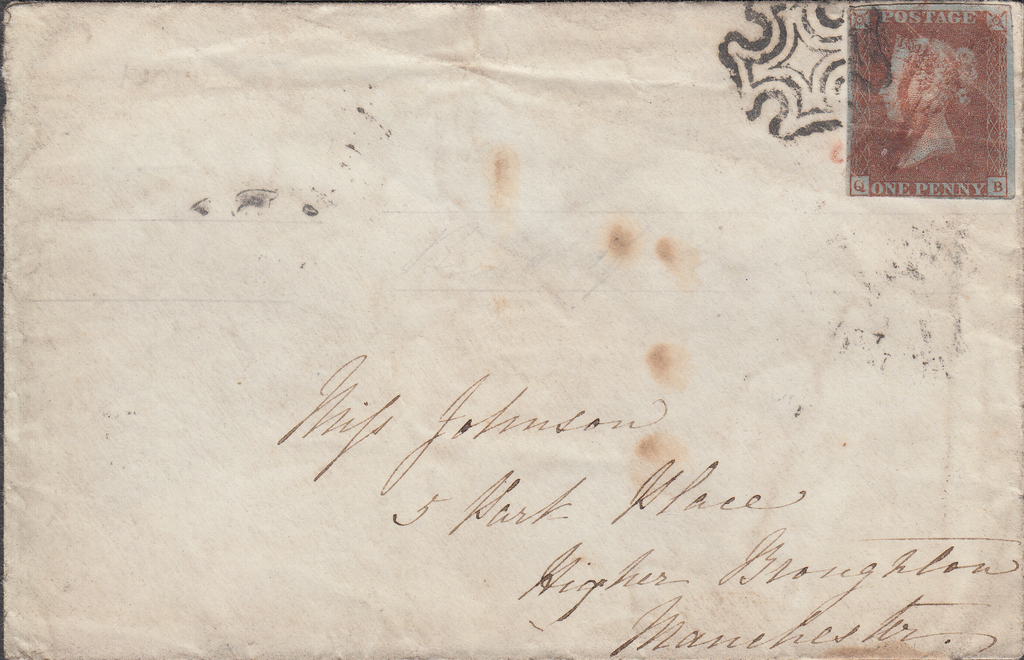 POSTAGE
ONE PENNY
Q B
Miss Johnson
5 Park Place
Higher Broughton
Manchester.